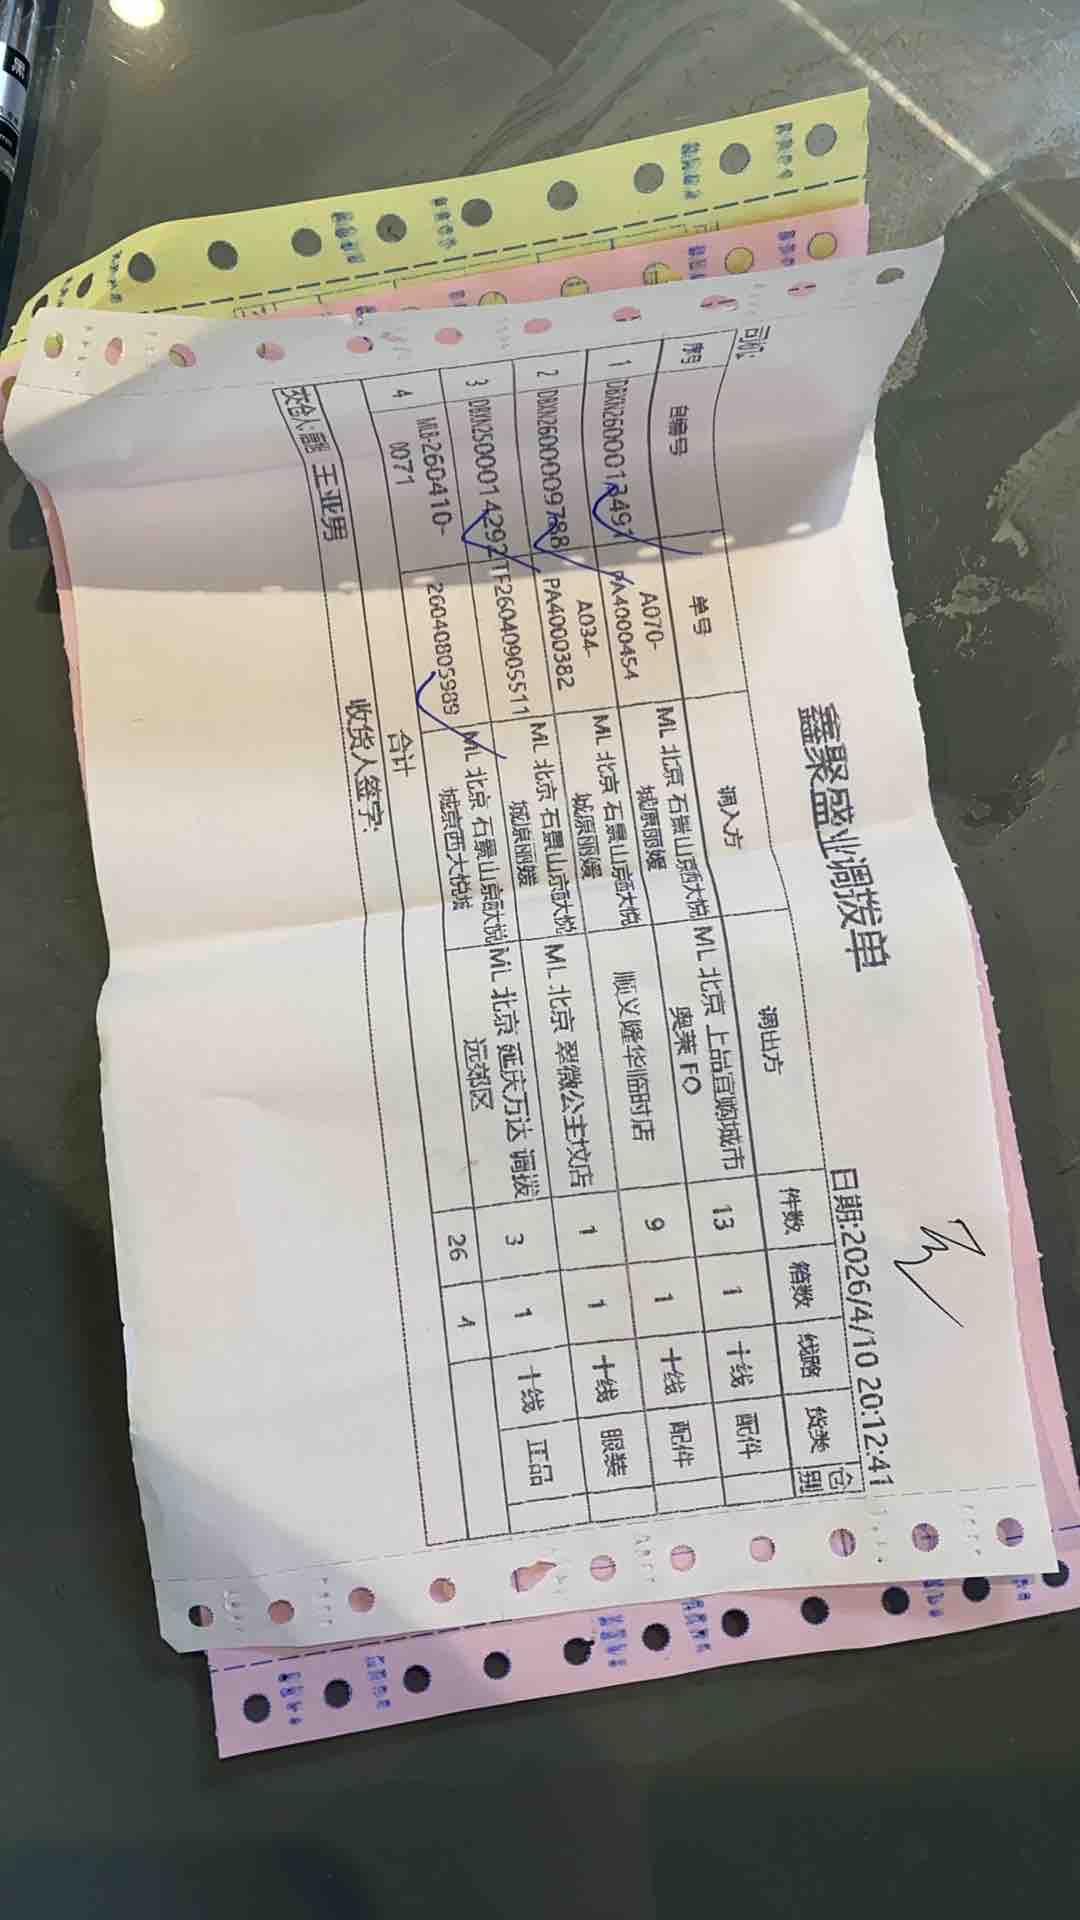 鑫聚盛业调拨单
日期:2026/4/10 20:12:41
司机:
序号 自编号 单号 调入方 调出方 件数 箱数 线路 货类 仓别
1 DBXN2600013491 A070-PA4000454 ML 北京 石景山京西大悦城原丽媛 ML 北京 上品宜购城市奥莱 FO 13 1 十线 配件
2 DBXN2600009788 A034-PA4000382 ML 北京 石景山京西大悦城原丽媛 顺义隆华临时店 9 1 十线 配件
3 DBXN2500014292 TF26040905511 ML 北京 石景山京西大悦城原丽媛 ML 北京 翠微公主坟店 1 1 十线 服装
4 MLB-260410-0071 26040805989 ML 北京 石景山京西大悦城京西大悦城 ML 北京 延庆万达 调拨远郊区 3 1 十线 正品
合计 26 4
王亚男
收货人签字: